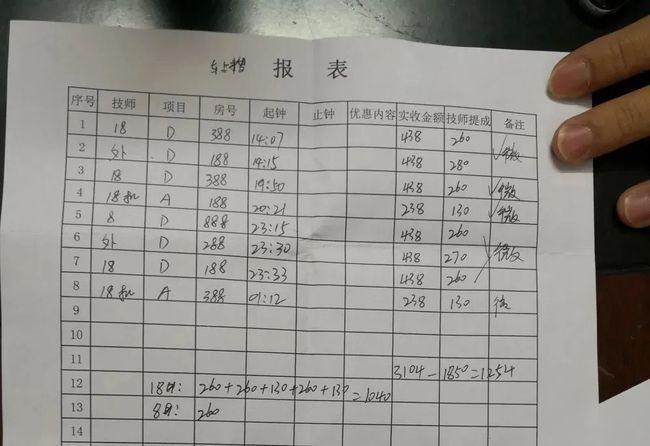 报 表
序号 技师 项目 房号 起钟 止钟 优惠内容 实收金额 技师提成 备注
1 18 D 388 14:07 438 260
2 外 D 188 14:15 438 280 √微
3 18 D 388 19:50 438 260 √微
4 18 A 188 20:21 238 130 √微
5 8 D 888 23:15 438 260
6 外 D 288 23:30 438 270 微
7 18 D 188 23:33 438 260
8 18 A 388 01:12 238 130
9
10
11 3104-1850=1254
12 18#: 260+260+130+260+130=1040
13 8#: 260
14